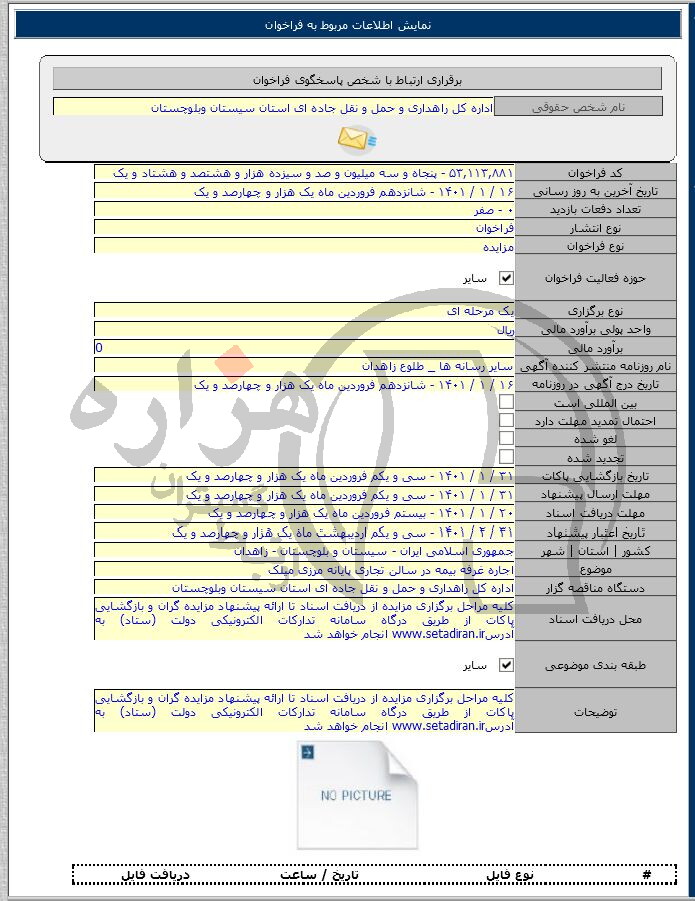 نمایش اطلاعات مربوط به فراخوان
برقراری ارتباط با شخص پاسخگوی فراخوان
نام شخص حقوقی اداره کل راهداری و حمل و نقل جاده ای استان سیستان وبلوچستان
کد فراخوان ۵۳,۱۱۳,۸۸۱ - پنجاه و سه میلیون و صد و سیزده هزار و هشتصد و هشتاد و یک
تاریخ آخرین به روز رسانی ۱۶ / ۱ / ۱۴۰۱ - شانزدهم فروردین ماه یک هزار و چهارصد و یک
تعداد دفعات بازدید ۰ - صفر
نوع انتشار فراخوان
نوع فراخوان مزایده
حوزه فعالیت فراخوان سایر
نوع برگزاری یک مرحله ای
واحد پولی برآورد مالی ریال
برآورد مالی 0
نام روزنامه منتشر کننده آگهی سایر رسانه ها _ طلوع زاهدان
تاریخ درج آگهی در روزنامه ۱۶ / ۱ / ۱۴۰۱ - شانزدهم فروردین ماه یک هزار و چهارصد و یک
بین المللی است
احتمال تمدید مهلت دارد
لغو شده
تجدید شده
تاریخ بازگشایی پاکات ۳۱ / ۱ / ۱۴۰۱ - سی و یکم فروردین ماه یک هزار و چهارصد و یک
مهلت ارسال پیشنهاد ۳۱ / ۱ / ۱۴۰۱ - سی و یکم فروردین ماه یک هزار و چهارصد و یک
مهلت دریافت اسناد ۲۰ / ۱ / ۱۴۰۱ - بیستم فروردین ماه یک هزار و چهارصد و یک
تاریخ اعتبار پیشنهاد ۳۱ / ۲ / ۱۴۰۱ - سی و یکم اردیبهشت ماه یک هزار و چهارصد و یک
کشور | استان | شهر جمهوری اسلامی ایران - سیستان و بلوچستان - زاهدان
موضوع اجاره غرفه بیمه در سالن تجاری پایانه مرزی میلک
دستگاه مناقصه گزار اداره کل راهداری و حمل و نقل جاده ای استان سیستان وبلوچستان
محل دریافت اسناد کلیه مراحل برگزاری مزایده از دریافت اسناد تا ارائه پیشنهاد مزایده گران و بازگشایی
پاکات از طریق درگاه سامانه تدارکات الکترونیکی دولت (ستاد) به
آدرسwww.setadiran.ir انجام خواهد شد
طبقه بندی موضوعی سایر
توضیحات کلیه مراحل برگزاری مزایده از دریافت اسناد تا ارائه پیشنهاد مزایده گران و بازگشایی
پاکات از طریق درگاه سامانه تدارکات الکترونیکی دولت (ستاد) به
آدرسwww.setadiran.ir انجام خواهد شد
NO PICTURE
# نوع فایل تاریخ / ساعت دریافت فایل
هزاره